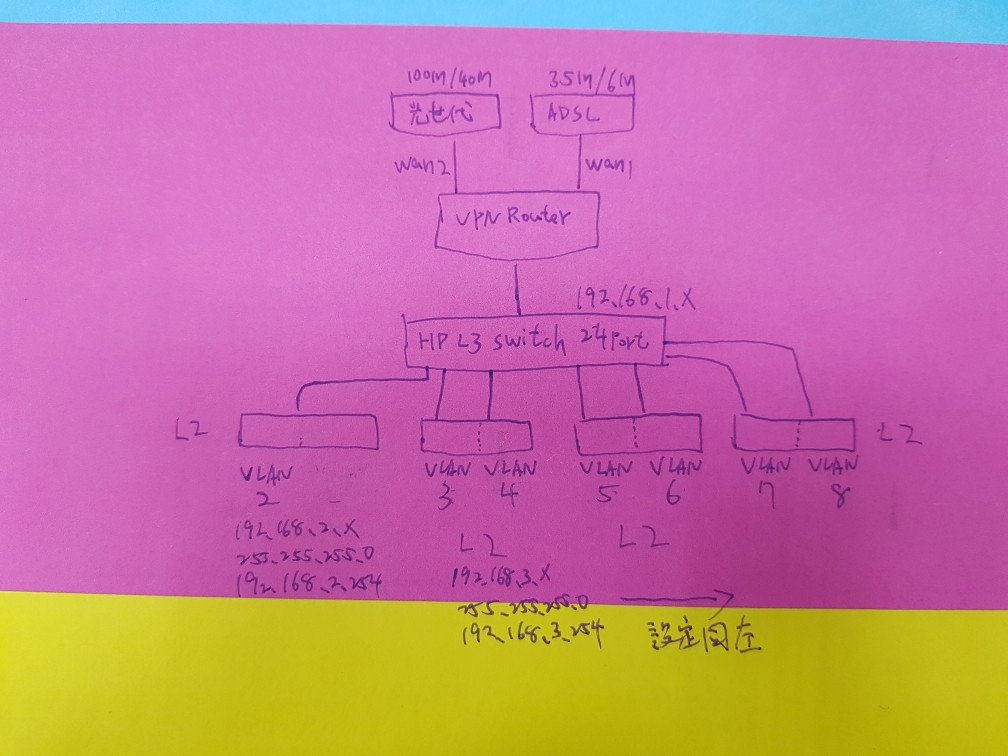 100M/40M
35M/6M
光世代
ADSL
wan2
wan1
VPN Router
192.168.1.X
HP L3 switch 24port
L2
L2
VLAN
2
VLAN
3
VLAN
4
VLAN
5
VLAN
6
VLAN
7
VLAN
8
192.168.2.X
255.255.255.0
192.168.2.254
L2
192.168.3.X
255.255.255.0
192.168.3.254
L2
設定同左